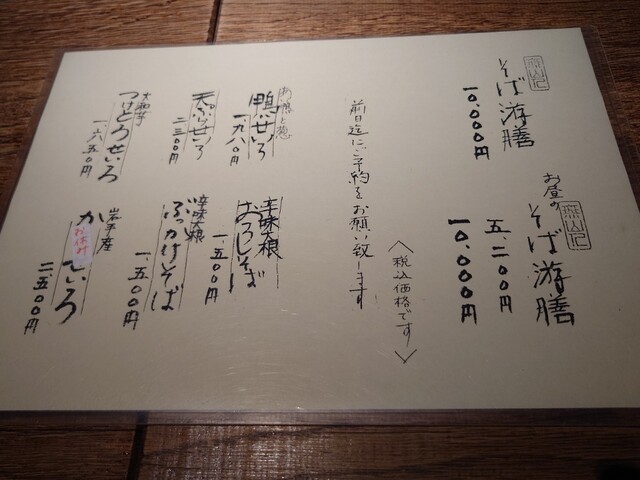 そば游膳
一〇、〇〇〇円
お昼の
そば游膳
五、二〇〇円
一〇、〇〇〇円
前日迄にご予約をお願い致します
〈税込価格です〉
鴨せいろ
一、九八〇円
天ぷらせいろ
二三〇〇円
大和芋
つけとろせいろ
一、六五〇円
辛味大根
おろしそば
一、五〇〇円
辛味大根
ぶっかけそば
一、五〇〇円
岩手産
か
お休み
せいろ
二、五〇〇円